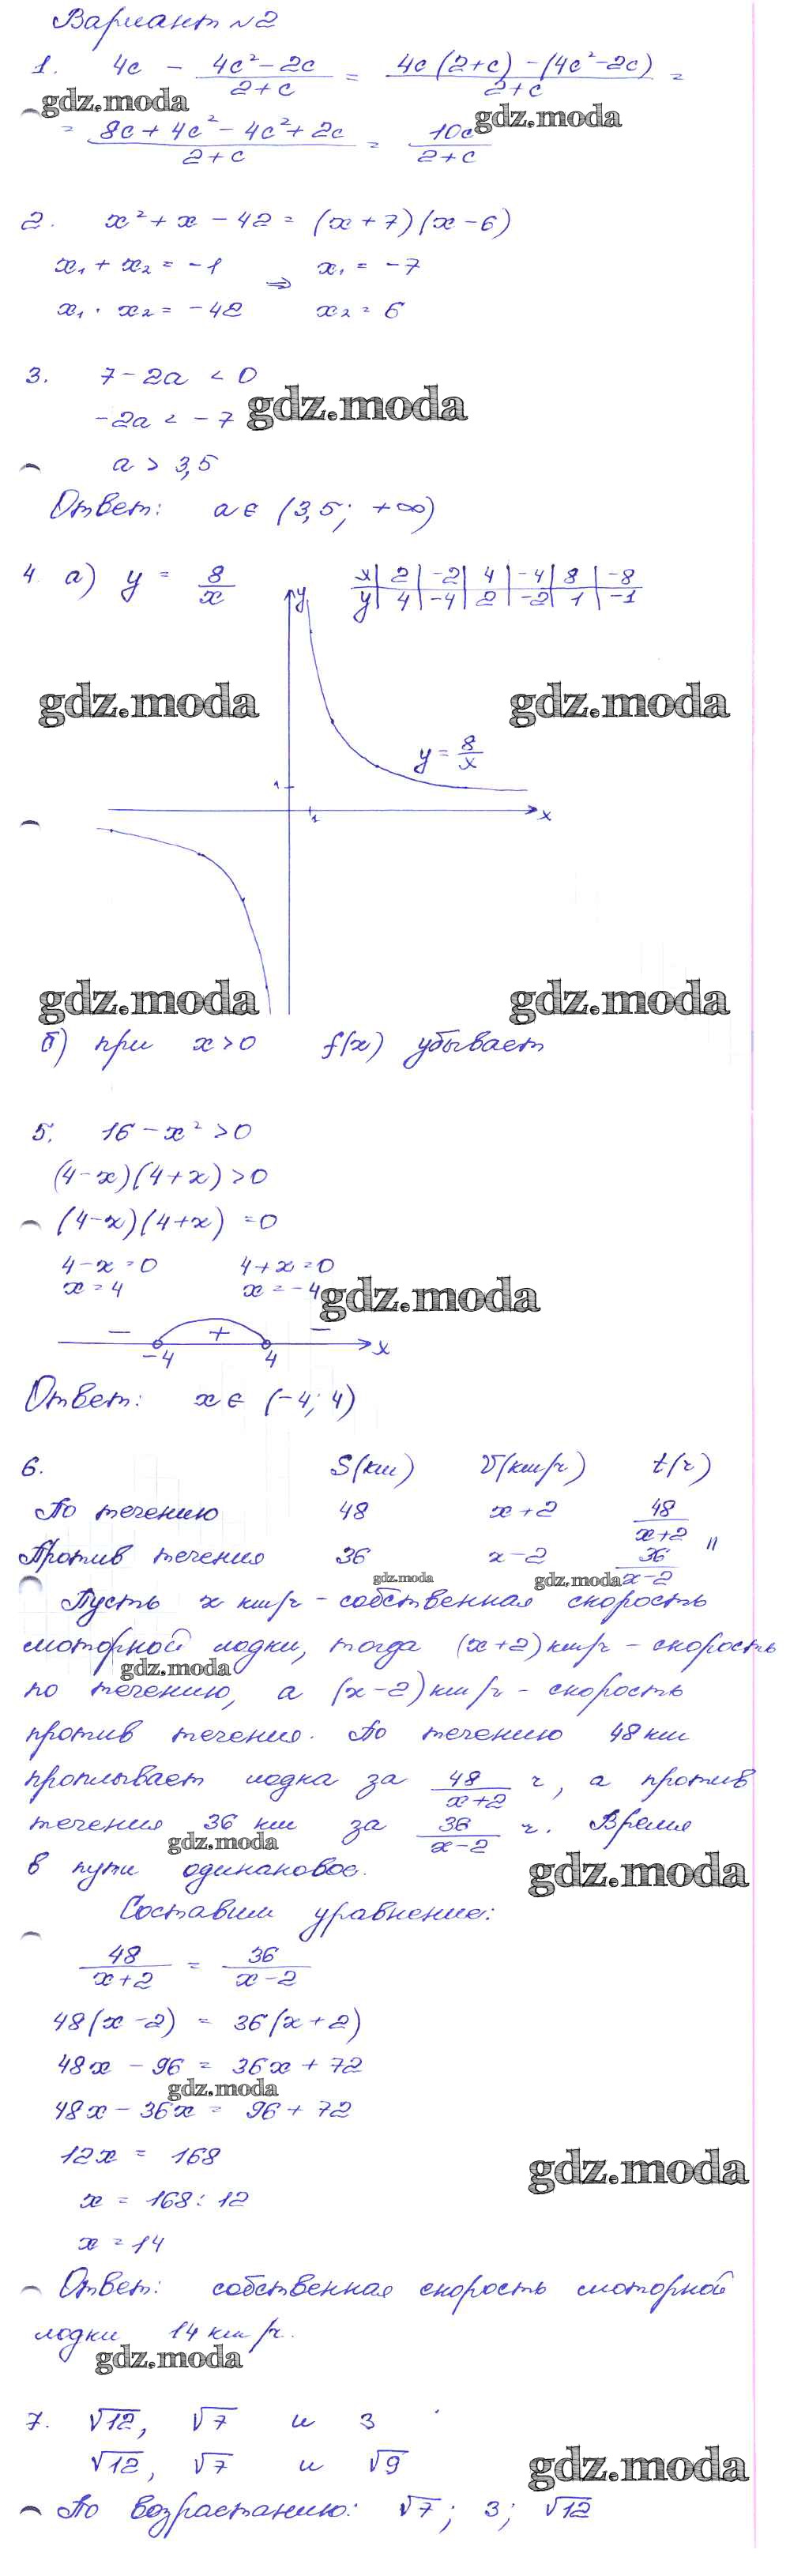 Вариант №2
1. 4c - (4c² - 2c)/(2+c) = (4c(2+c) - (4c² - 2c))/(2+c) =
gdz.moda
gdz.moda
= (8c + 4c² - 4c² + 2c)/(2+c) = 10c/(2+c)
2. x² + x - 42 = (x+7)(x-6)
x₁ + x₂ = -1 ⇒ x₁ = -7
x₁ · x₂ = -42 x₂ = 6
3. 7 - 2a < 0
-2a < -7
gdz.moda
a > 3,5
Ответ: a ∈ (3,5; +∞)
4. а) y = 8/x
x | 2 | -2 | 4 | -4 | 8 | -8
y | 4 | -4 | 2 | -2 | 1 | -1
y
gdz.moda
gdz.moda
y = 8/x
1
1
x
gdz.moda
gdz.moda
б) при x > 0 f(x) убывает
5. 16 - x² > 0
(4-x)(4+x) > 0
(4-x)(4+x) = 0
4 - x = 0 4 + x = 0
x = 4 x = -4
gdz.moda
- + - x
-4 4
Ответ: x ∈ (-4; 4)
6. S(км) V(км/ч) t(ч)
По течению 48 x+2 48/(x+2)
Против течения 36 x-2 36/(x-2) "
gdz.moda
gdz.moda
Пусть x км/ч - собственная скорость
моторной лодки, тогда (x+2) км/ч - скорость
gdz.moda
по течению, а (x-2) км/ч - скорость
против течения. По течению 48 км
проплывает лодка за 48/(x+2) ч, а против
течения 36 км за 36/(x-2) ч. Время
gdz.moda
в пути одинаковое.
gdz.moda
Составим уравнение:
48/(x+2) = 36/(x-2)
48(x-2) = 36(x+2)
48x - 96 = 36x + 72
gdz.moda
48x - 36x = 96 + 72
12x = 168
gdz.moda
x = 168 : 12
x = 14
Ответ: собственная скорость моторной
лодки 14 км/ч.
gdz.moda
7. √12, √7 и 3
√12, √7 и √9
gdz.moda
По возрастанию: √7; 3; √12